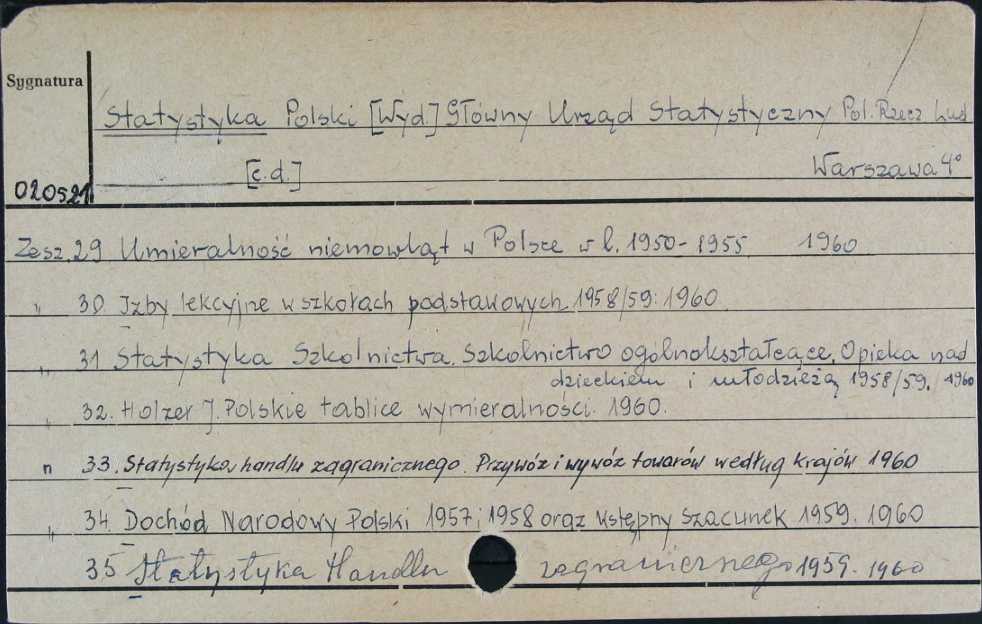 Sygnatura
Statystyka Polski [Wyd.] Główny Urząd Statystyczny Pol. Rzecz Lud
[c.d.] Warszawa 4°
020521
Zesz. 29 Umieralność niemowląt w Polsce w l. 1950-1955 1960
" 30. Izby lekcyjne w szkołach podstawowych 1958/59: 1960
" 31 Statystyka Szkolnictwa. Szkolnictwo ogólnokształcące. Opieka nad
dzieckiem i młodzieżą 1958/59. 1960
" 32. Holzer J. Polskie tablice wymieralności. 1960.
" 33. Statystyka handlu zagranicznego. Przywóz i wywóz towarów według krajów 1960
" 34. Dochód Narodowy Polski 1957 i 1958 oraz wstępny szacunek 1959. 1960
35 Statystyka Handlu zagranicznego 1959. 1960